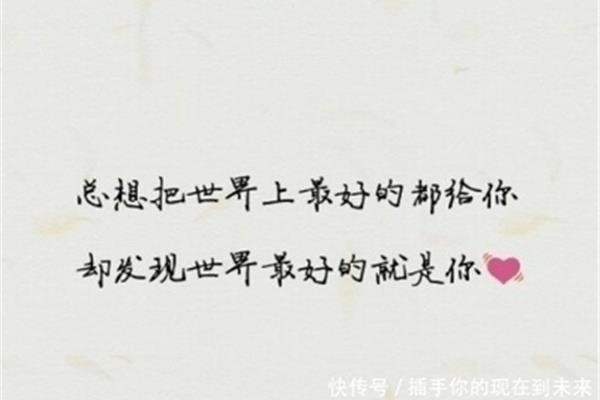 总想把世界上最好的都给你
却发现世界最好的就是你
快传号／插手你的现在到未来